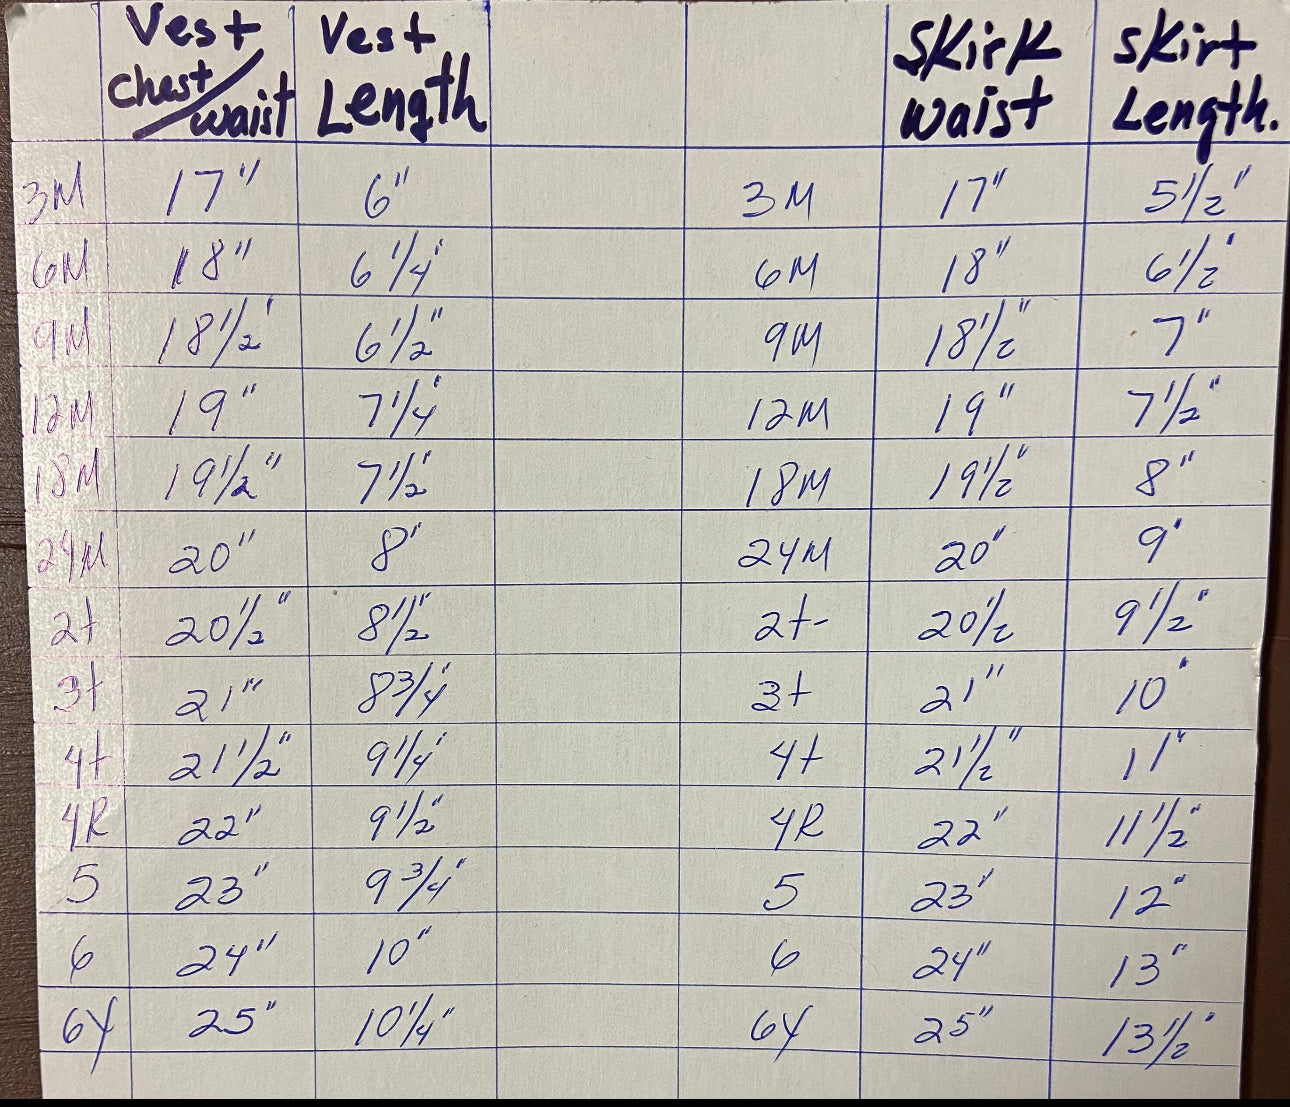 Vest chest/waist Vest Length SKirK waist sKirt Length.
3M 17" 6" 3M 17" 5 1/2"
6M 18" 6 1/4" 6M 18" 6 1/2"
9M 18 1/2" 6 1/2" 9M 18 1/2" 7"
12M 19" 7 1/4" 12M 19" 7 1/2"
18M 19 1/2" 7 1/2" 18M 19 1/2" 8"
24M 20" 8" 24M 20" 9"
2t 20 1/2" 8 1/2" 2t- 20 1/2 9 1/2"
3t 21" 8 3/4" 3t 21" 10"
4t 21 1/2" 9 1/4" 4t 21 1/2" 11"
4R 22" 9 1/2" 4R 22" 11 1/2"
5 23" 9 3/4" 5 23" 12"
6 24" 10" 6 24" 13"
6Y 25" 10 1/4" 6Y 25" 13 1/2"